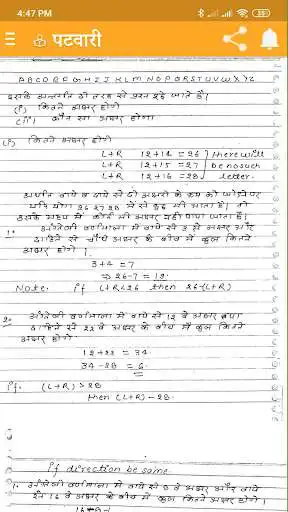 4:47 PM
26
पटवारी
A B C D E F G H I J K L M N O P Q R S T U V W X Y Z
इसके अन्तर्गत दो तरह से प्रश्न पूछे जाते हैं।
(i) कितने अक्षर होंगे
(ii) कौन सा अक्षर होगा
(i) कितने अक्षर होंगे
L+R 12+14 = 26 } there will
L+R 12+15 = 27 } be no such
L+R 12+16 = 28 } letter.
अर्थात बायें व दायें से दो अक्षरों के क्रम को जोड़ने पर
यदि योग 26 27 28 में से कुछ भी आता है। तो
उसके मध्य में कोई भी अक्षर नहीं पाया जाता है।
1. अंग्रेजी वर्णमाला में बायें से 3 रे अक्षर और
दाहिने से चौथे अक्षर के बीच में कुल कितने
अक्षर होंगे।
3+4 = 7
⇒ 26-7 = 19
Note. if L+R<26 then 26-(L+R)
2. अंग्रेजी वर्णमाला में बायें से 12 वे अक्षर तथा
दाहिने से 22 वे अक्षर के बीच में कुल कितने
अक्षर होंगे।
12+22 = 34
34-28 = 6
if. (L+R)>28
then (L+R)-28
if direction be same
1. अंग्रेजी वर्णमाला में बायें से 9 वे अक्षर और बायें
से 16 वे अक्षर के बीच में कुल कितने अक्षर होंगे।